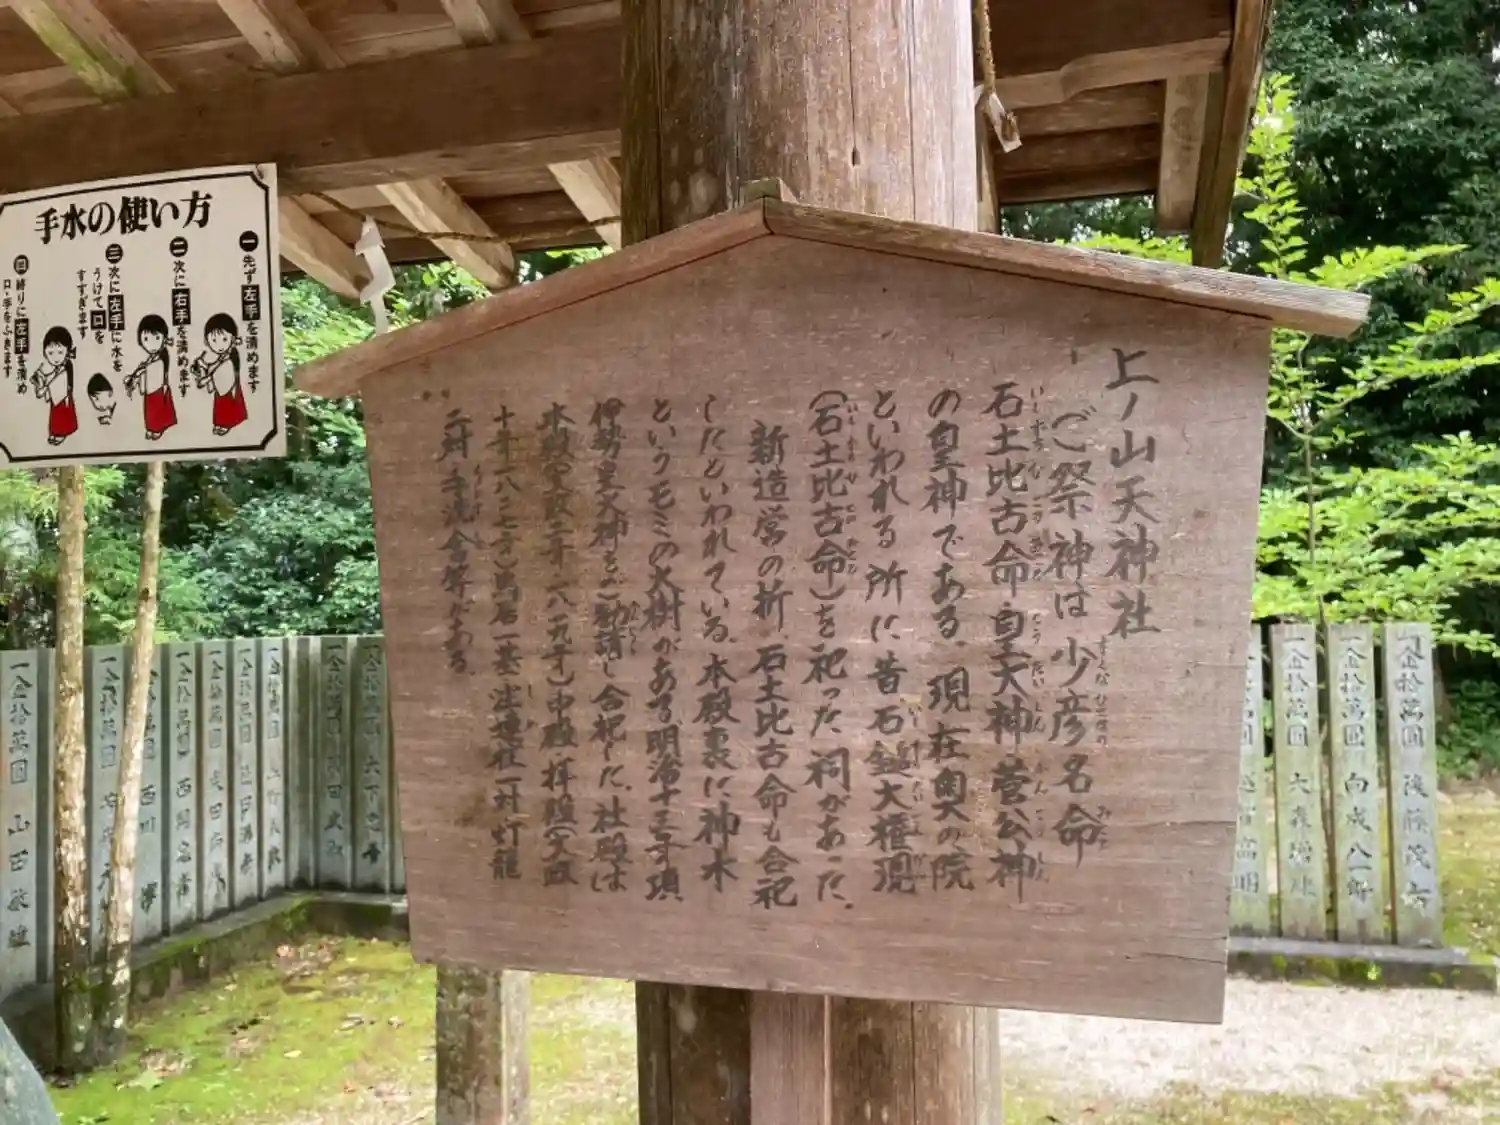 手水の使い方
一 先ず左手を清めます
二 次に右手を清めます
三 次に左手に水を
うけて口を
すすぎます
四 終りに左手を清め
口・手をふきます
上ノ山天神社
ご祭神は少彦名命
石土比古命 皇大神 菅公神
の皇神である。現在奥の院
といわれる所に昔石鎚大権現
(石土比古命)を祀った祠があった。
新造営の折、石土比古命も合祀
したといわれている。本殿裏に神木
というモミの大樹がある。明治十三年頃
伊勢皇大神をご勧請し合祀した。社殿は
本殿寛政二年 中殿 拝殿(文政
十年一八二七年)鳥居一基 注連柱一対 灯籠
二対 手洗舎等がある。
一金拾萬圓 山田
一金拾萬圓
一金拾萬圓 西川
一金拾萬圓 西岡
一金拾萬圓
一金拾萬圓 六下
一金拾萬圓 大森
一金拾萬圓 向成八一郎
一金拾萬圓 後藤茂